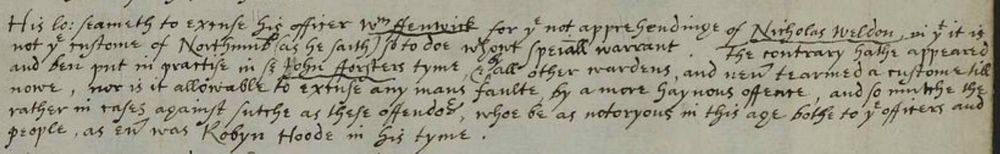 His lo: seameth to excuse his officer Wm ffenwick for ye not apprehendinge of Nicholas Weldon, in yt it is
not ye custome of Northumb (as he saith) so to doe whout speciall warrant. The contrary hathe appeared
and ben put in practise in Sr John fforsters tyme, & by all other wardens, and nevr tearmed a custome till
nowe, nor is it allowable to excuse any mans faulte by a more haynous offence, and so mutche the
rather in cases against sutche as these offendors, whoe be as notoryous in this age bothe to ye officers and
people, as evr was Robyn Hoode in his tyme.